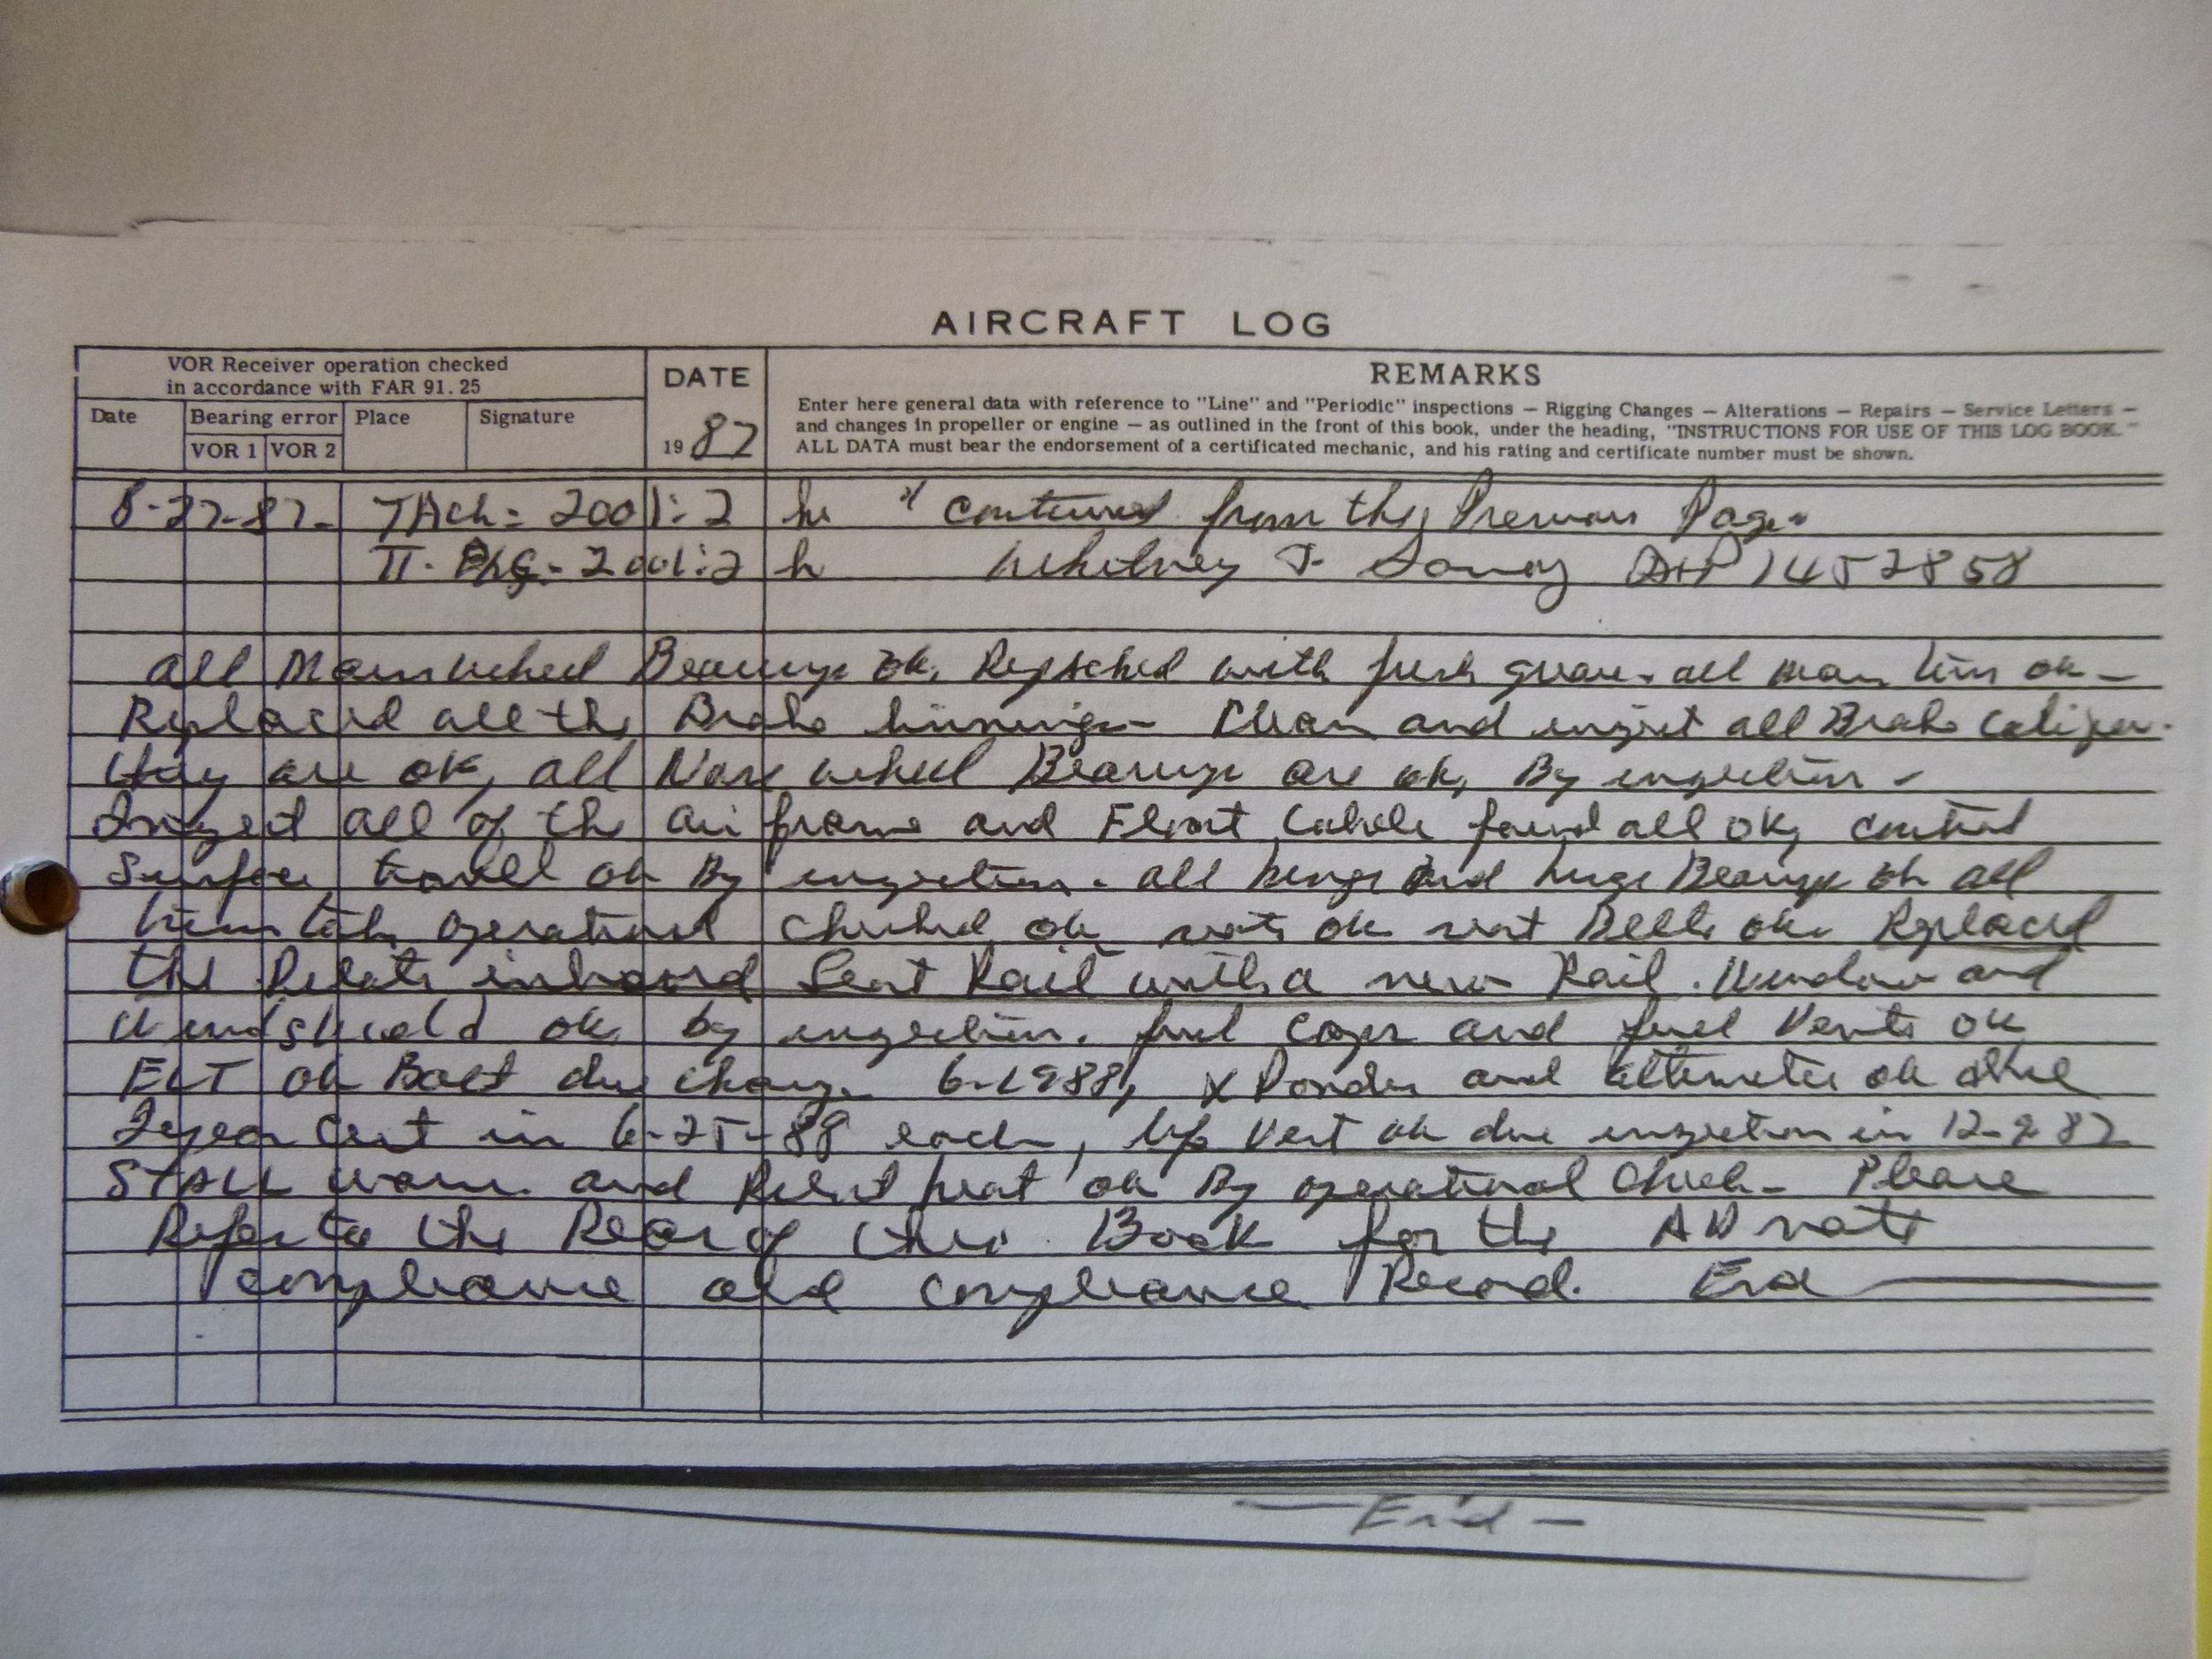 AIRCRAFT LOG
VOR Receiver operation checked
in accordance with FAR 91.25
Date
Bearing error
VOR 1 VOR 2
Place
Signature
DATE
1987
REMARKS
Enter here general data with reference to "Line" and "Periodic" inspections — Rigging Changes — Alterations — Repairs — Service Letters —
and changes in propeller or engine — as outlined in the front of this book, under the heading, "INSTRUCTIONS FOR USE OF THIS LOG BOOK."
ALL DATA must bear the endorsement of a certificated mechanic, and his rating and certificate number must be shown.
8-27-87- TAch = 2001:2 hr continued from the Previous Page.
TT. 2001:2 h Whitney J. A+P 1452858
all Main wheel Bearings ok, Repacked with fresh grease. all main ok -
Replaced all the Brake linnings - Clean and inspect all Brake Caliper.
they are ok, all Nose wheel Bearings are ok, By inspection -
Inspect all of the air frame and Cable found all ok, control
Surface travell ok By inspection. all hinge and hinge Bearings ok all
trim tab operational checked ok seats ok seat Belts ok. Replaced
the Pilots inboard Seat Rail with a new Rail. Window and
Windshield ok by inspection. fuel caps and fuel Vents ok
ELT ok Batt due change 6-1988, X Ponder and altimeter ok
2 year Cert in 6-25-89 each, Vest ok due inspection in 12-9 87
STALL warn and Pitot heat ok By operational Check - Please
Refer to the Rear of this Book for the AD note
compliance and compliance Record. End
— End —